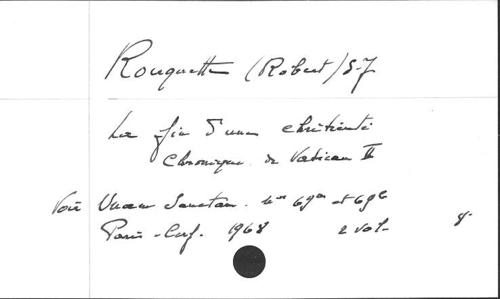 Rouquette (Robert) S.J
La fin d'une chrétienté
Chronique de Vatican II
Voir Unam Sanctam. nos 69a et 69b
Paris - Cerf. 1968 2 vol- 8°